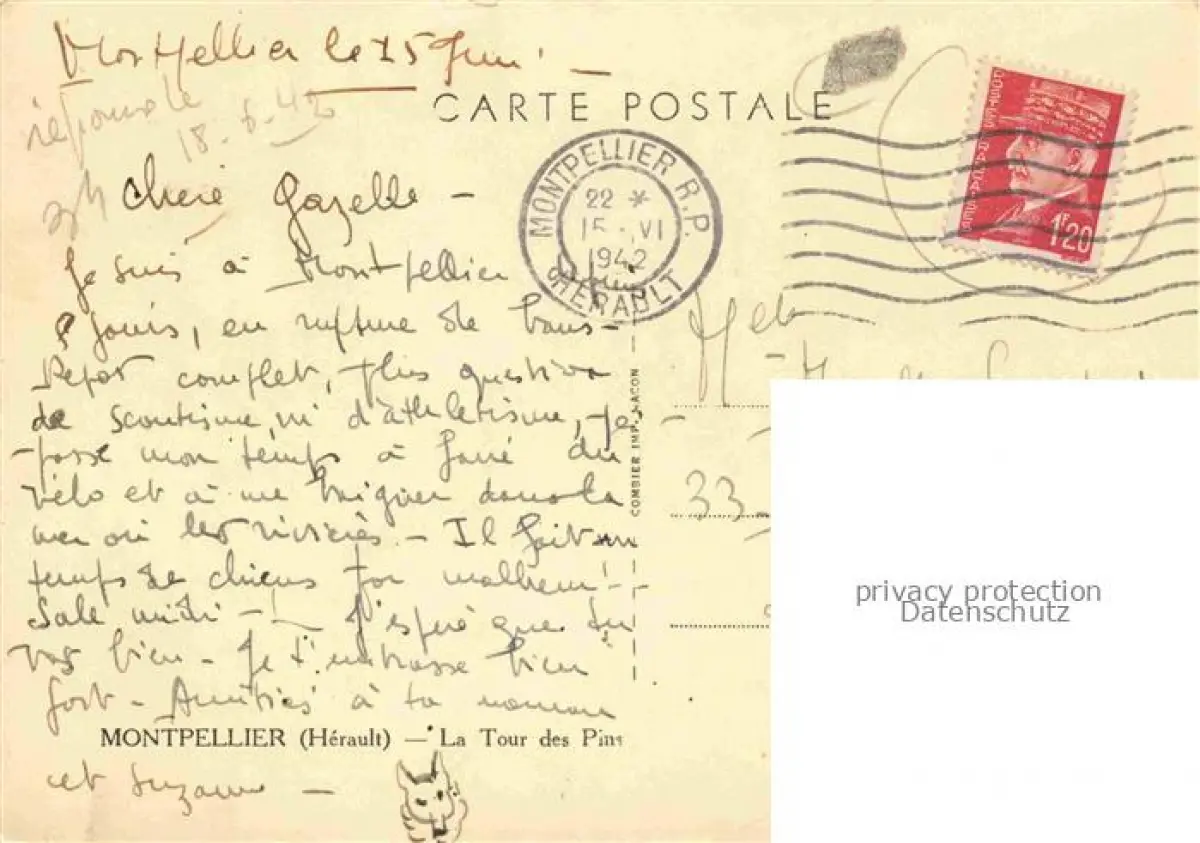 Montpellier le 15 Juin
réponse le
18-6-42
CARTE POSTALE
MONTPELLIER R.P.
22 *
15-VI
1942
HERAULT
1F20
Chère Gazelle -
Je suis à Montpellier
jours, en rupture de bans -
Repos complet, plus question
de scoutisme, ni d'athlétisme, je
passe mon temps à faire du
vélo et à me baigner dans la
mer ou les rivières - Il fait un
temps de chiens par malheur!
Sale midi - J'espère que tu
vas bien - Je t'embrasse bien
fort - Amitiés à ta maman
MONTPELLIER (Hérault) — La Tour des Pins
et Suzanne -
COMBIER IMP. MACON
33
privacy protection
Datenschutz